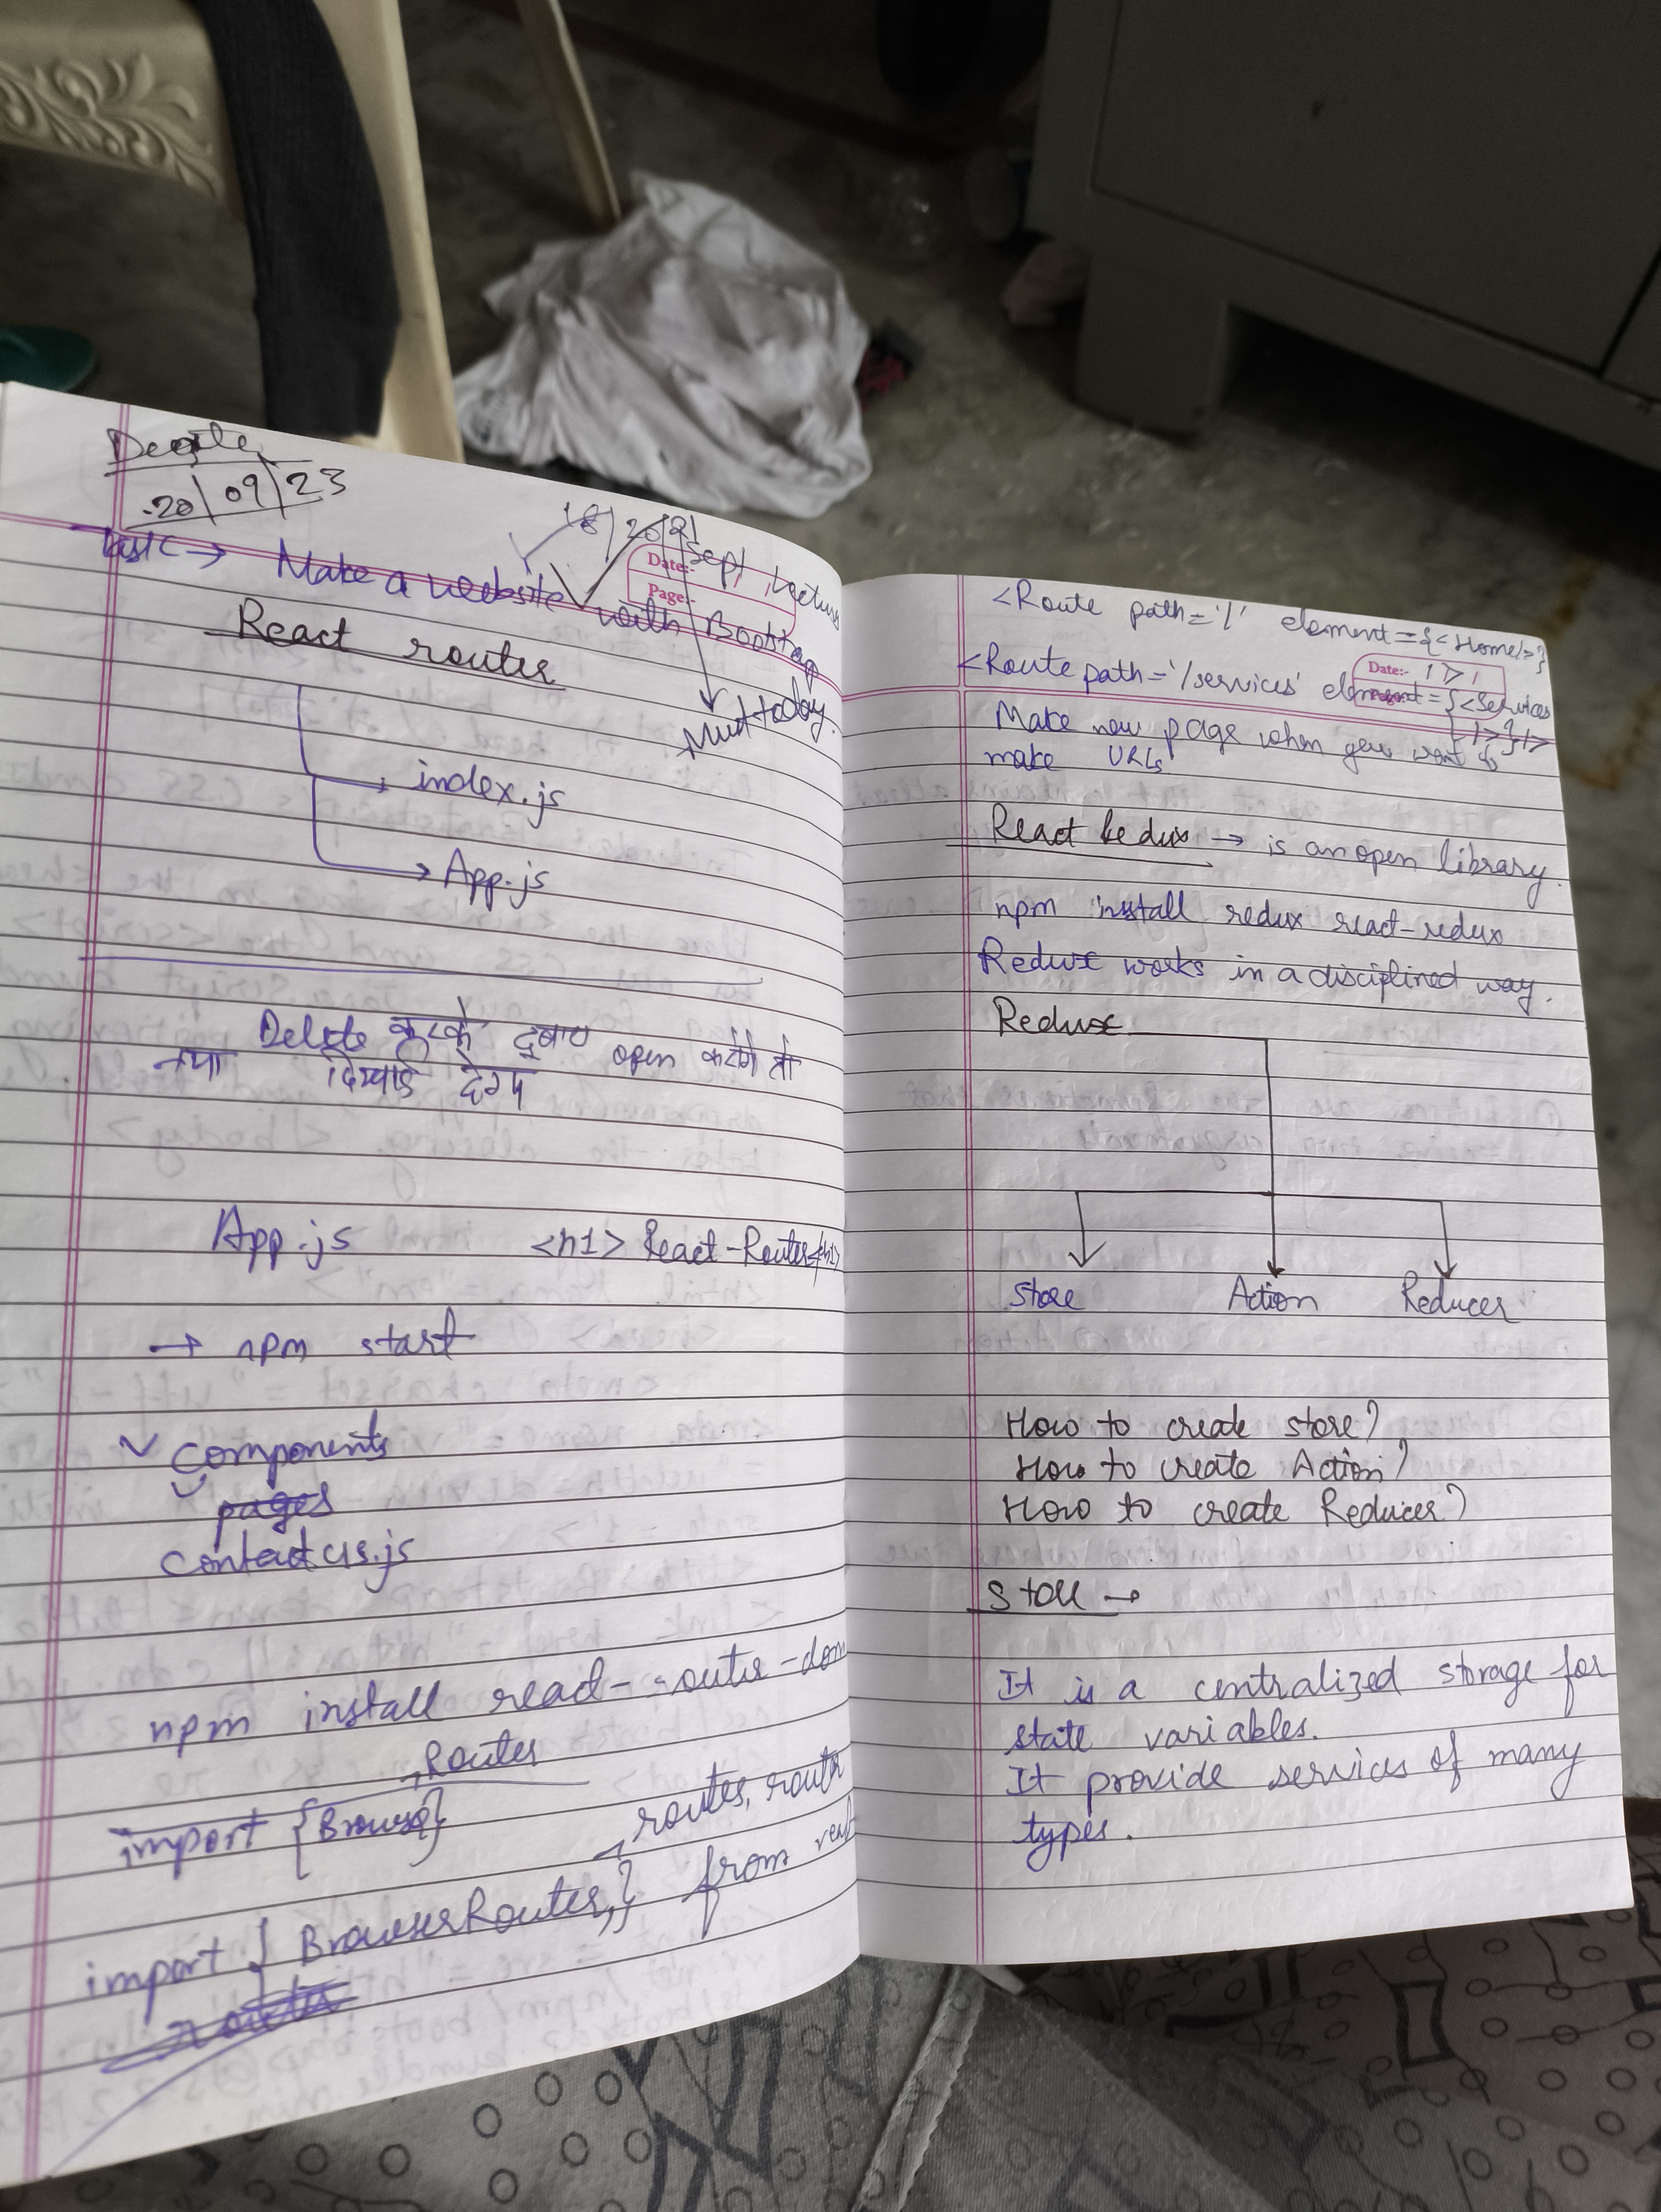 20/09/23
18/20/21 Sept Lecture
Date:-
Page:-
Task → Make a website with Bootstrap
React router
Must today.
index.js
App.js
Delete करके दुबारा open करेंगे तो
नया दिखाई देगा
App.js <h1> React-Router</h1>
→ npm start
components
pages
contactus.js
npm install read-router-dom
, Router
import {Browse}
routes, route
import { BrowserRouter,} from react
route
<Route path='/' element={<Home/>}
/>
Date:-
<Route path='/services' element={<Services
/>}/>
Make new page when you want to
make URLs
React Redux → is an open library.
npm install redux react-redux
Redux works in a disciplined way.
Redux
Store Action Reducer
How to create store?
How to create Action?
How to create Reducer?
Store →
It is a centralized storage for
state variables.
It provide services of many
types.